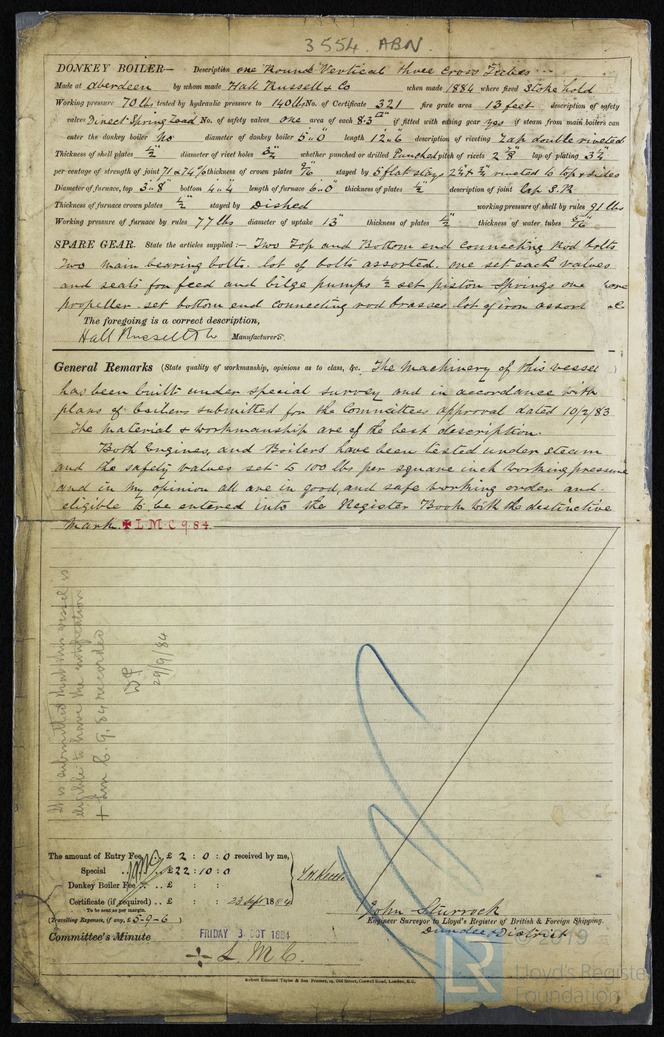 3554. ABN.
DONKEY BOILER— Description one Round Vertical three Cross Tubes
Made at Aberdeen by whom made Hall Russell & Co when made 1884 where fixed Stokehold
Working pressure 70 lbs tested by hydraulic pressure to 140 lbs No. of Certificate 321 fire grate area 13 feet description of safety
valves Direct Spring Load No. of safety valves one area of each 8·3 if fitted with easing gear yes if steam from main boilers can
enter the donkey boiler No diameter of donkey boiler 5'0" length 12'6 description of riveting Lap double riveted
Thickness of shell plates 1/2" diameter of rivet holes 3/4" whether punched or drilled Punched pitch of rivets 2 5/8 lap of plating 3 3/4
per centage of strength of joint 71 & 74% thickness of crown plates 9/16 stayed by 5 flat stays riveted to top & sides
Diameter of furnace, top 3'8" bottom 4'4 length of furnace 6'0 thickness of plates 1/2" description of joint Lap S.R
Thickness of furnace crown plates 1/2" stayed by Dished working pressure of shell by rules 91 lbs
Working pressure of furnace by rules 77 lbs diameter of uptake 13" thickness of plates 1/2" thickness of water tubes 5/16
SPARE GEAR. State the articles supplied:— Two Top and Bottom end connecting rod bolts
Two main bearing bolts. lot of bolts assorted. one set each valves
and seats for feed and bilge pumps 1/2 set piston springs one
propeller. set bottom end connecting rod brasses lot of iron assort
The foregoing is a correct description,
Hall Russell & Co Manufacturers.
General Remarks (State quality of workmanship, opinions as to class, &c. The machinery of this vessel
has been built under special survey and in accordance with
plans of boilers submitted for the Committees approval dated 10/2/83
The material & workmanship are of the best description.
Both Engines, and Boilers have been tested under steam
and the safety valves set to 100 lbs per square inch working pressure
and in my opinion all are in good, and safe working order and
eligible to be entered into the Register Book with the distinctive
mark. ✠ L.M.C 9.84.
It is submitted that this vessel is
eligible to have the notification
+ LMC 9.84 recorded
29/9/84
The amount of Entry Fee .. £ 2 : 0 : 0 received by me,
Special .. £ 22 : 10 : 0
Donkey Boiler Fee .. £ : :
Certificate (if required) .. £ : : 23 Sept 1884
To be sent as per margin.
(Travelling Expenses, if any, £ 5-9-6)
John Sturrock
Engineer Surveyor to Lloyd's Register of British & Foreign Shipping.
Dundee District
Committee's Minute FRIDAY 3 OCT 1884
+ L. M. C.
Robert Edmund Taylor & Son Printers, 19, Old Street, Goswell Road, London, E.C.
LR
2019
Lloyd's Registe
Foundation